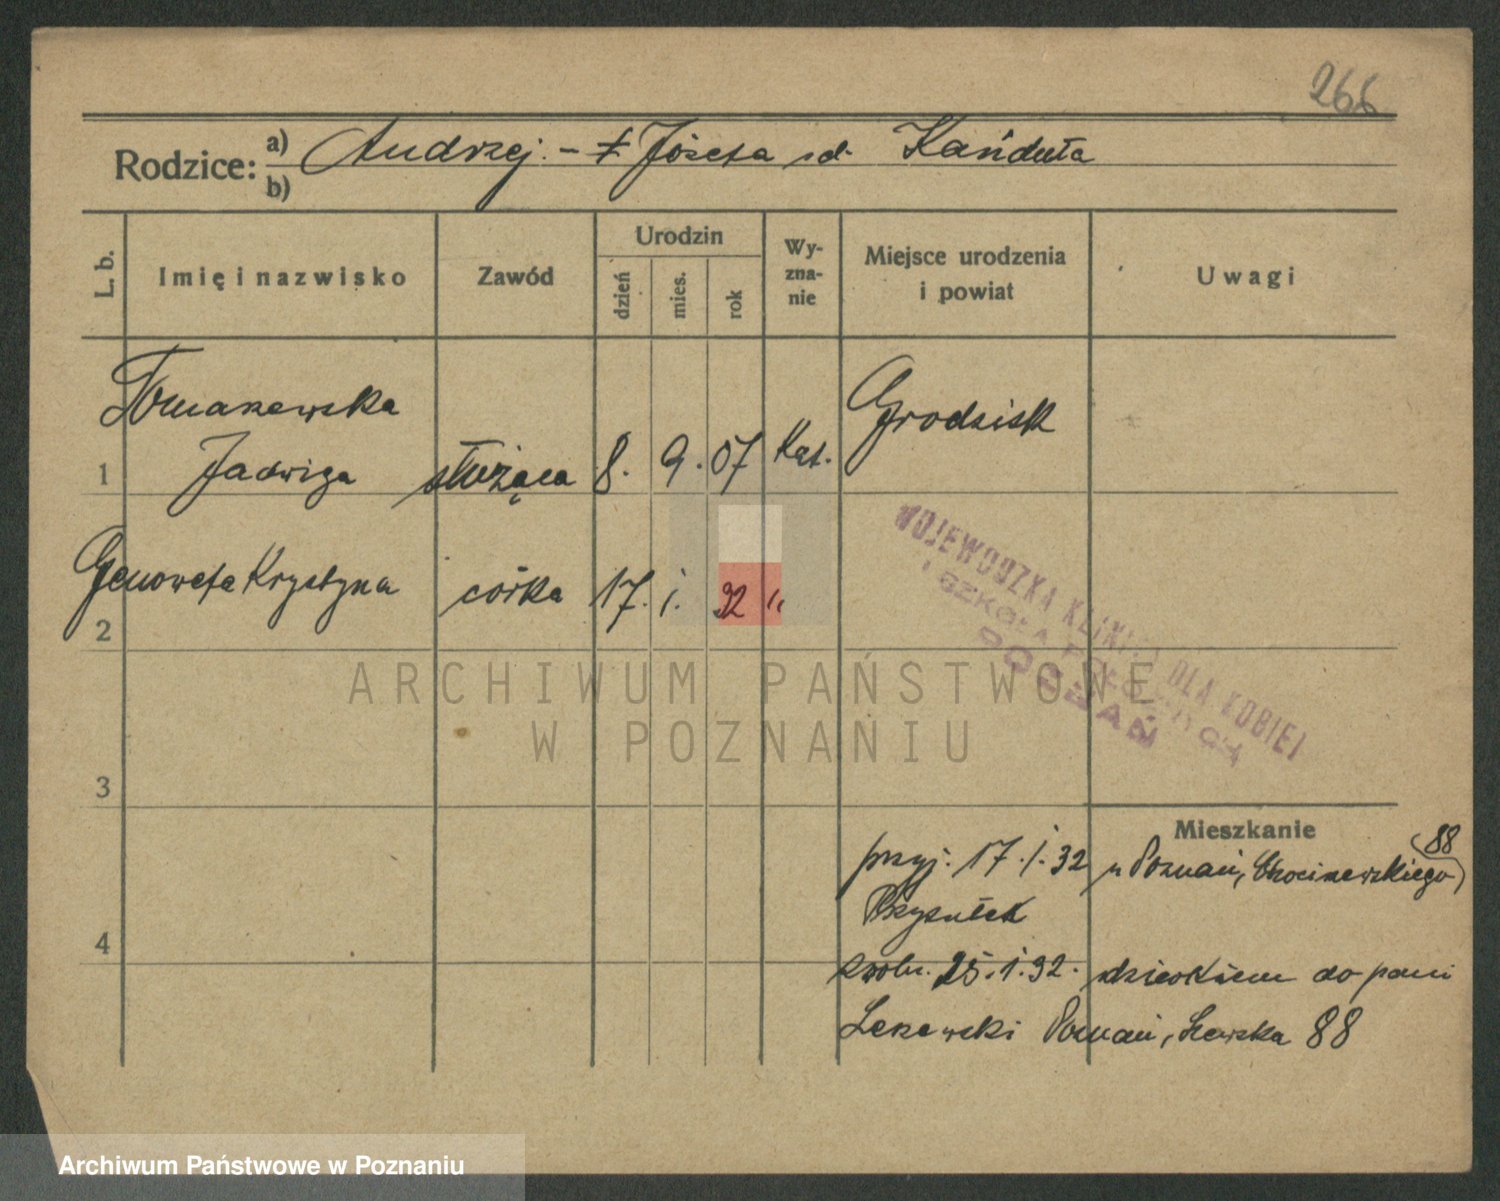 266
Rodzice: a) Andrzej - ‡ Józefa z d. Kańduła
b)
L. b.
Imię i nazwisko
Zawód
Urodzin
dzień
mies.
rok
Wy-
zna-
nie
Miejsce urodzenia
i powiat
Uwagi
Tomaszewska
1 Jadwiga służąca 8. 9. 07 Kat. Grodzisk
2 Genowefa Krystyna córka 17. i. 32 "
WOJEWÓDZKA KLINIKA DLA KOBIET
I SZKOŁA POŁOŻNYCH
POZNAŃ
ARCHIWUM PAŃSTWOWE
W POZNANIU
3
Mieszkanie
88
przyj. 17.i.32 Poznań,
Przytułek
4
zwoln. 25.i.32. dzieckiem do pani
Poznań, 88
Archiwum Państwowe w Poznaniu